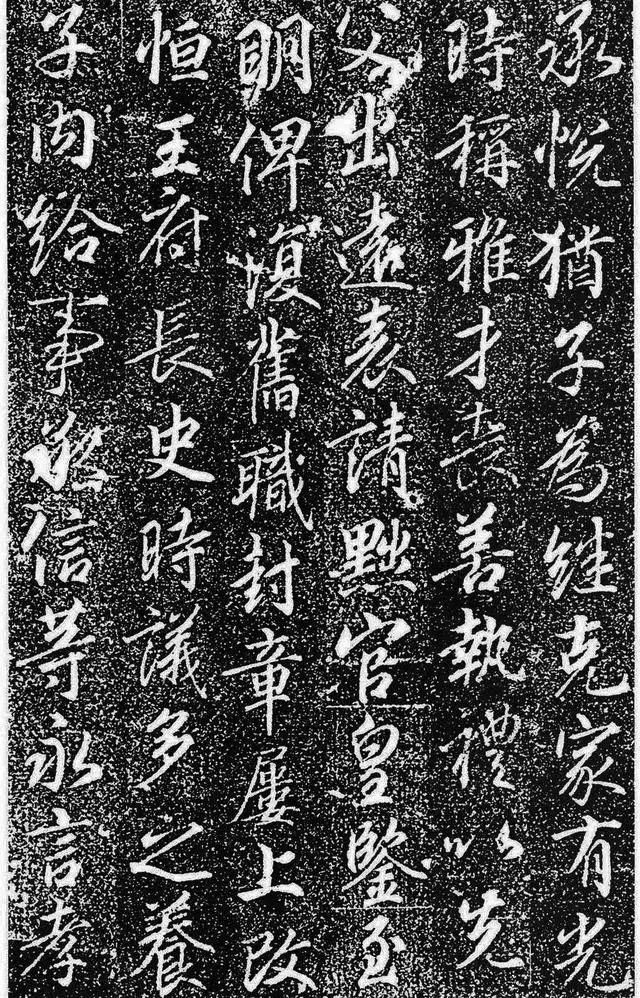 承悅猶子爲继克家有光
時稱雅才喪善執禮以先
父出遠表請黜官皇鑒至
明俾復舊職封章屢上改
恒王府長史時議多之養
子內給事承信等永言孝